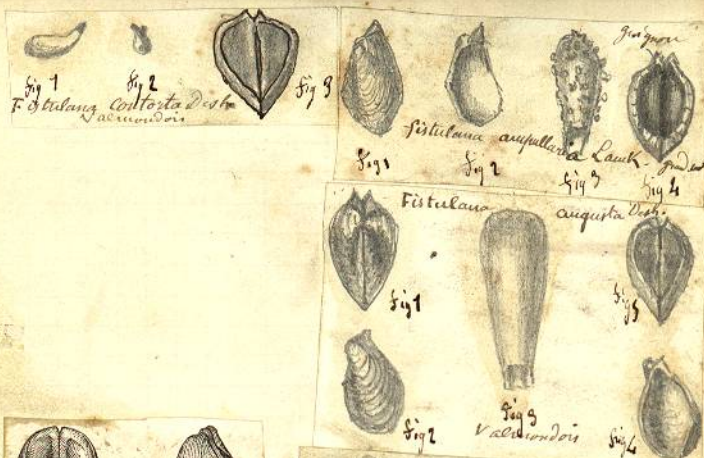 Fig 1
Fig 2
Fig 3
Fistulana Contorta Desh
Valmondois
Grignon
Fistulana ampullaria Lamk.
Fig 1
Fig 2
Fig 3
Fig 4
Fistulana angusta Desh.
Fig 1
Fig 5
Fig 2
Fig 3
Valmondois
Fig 4